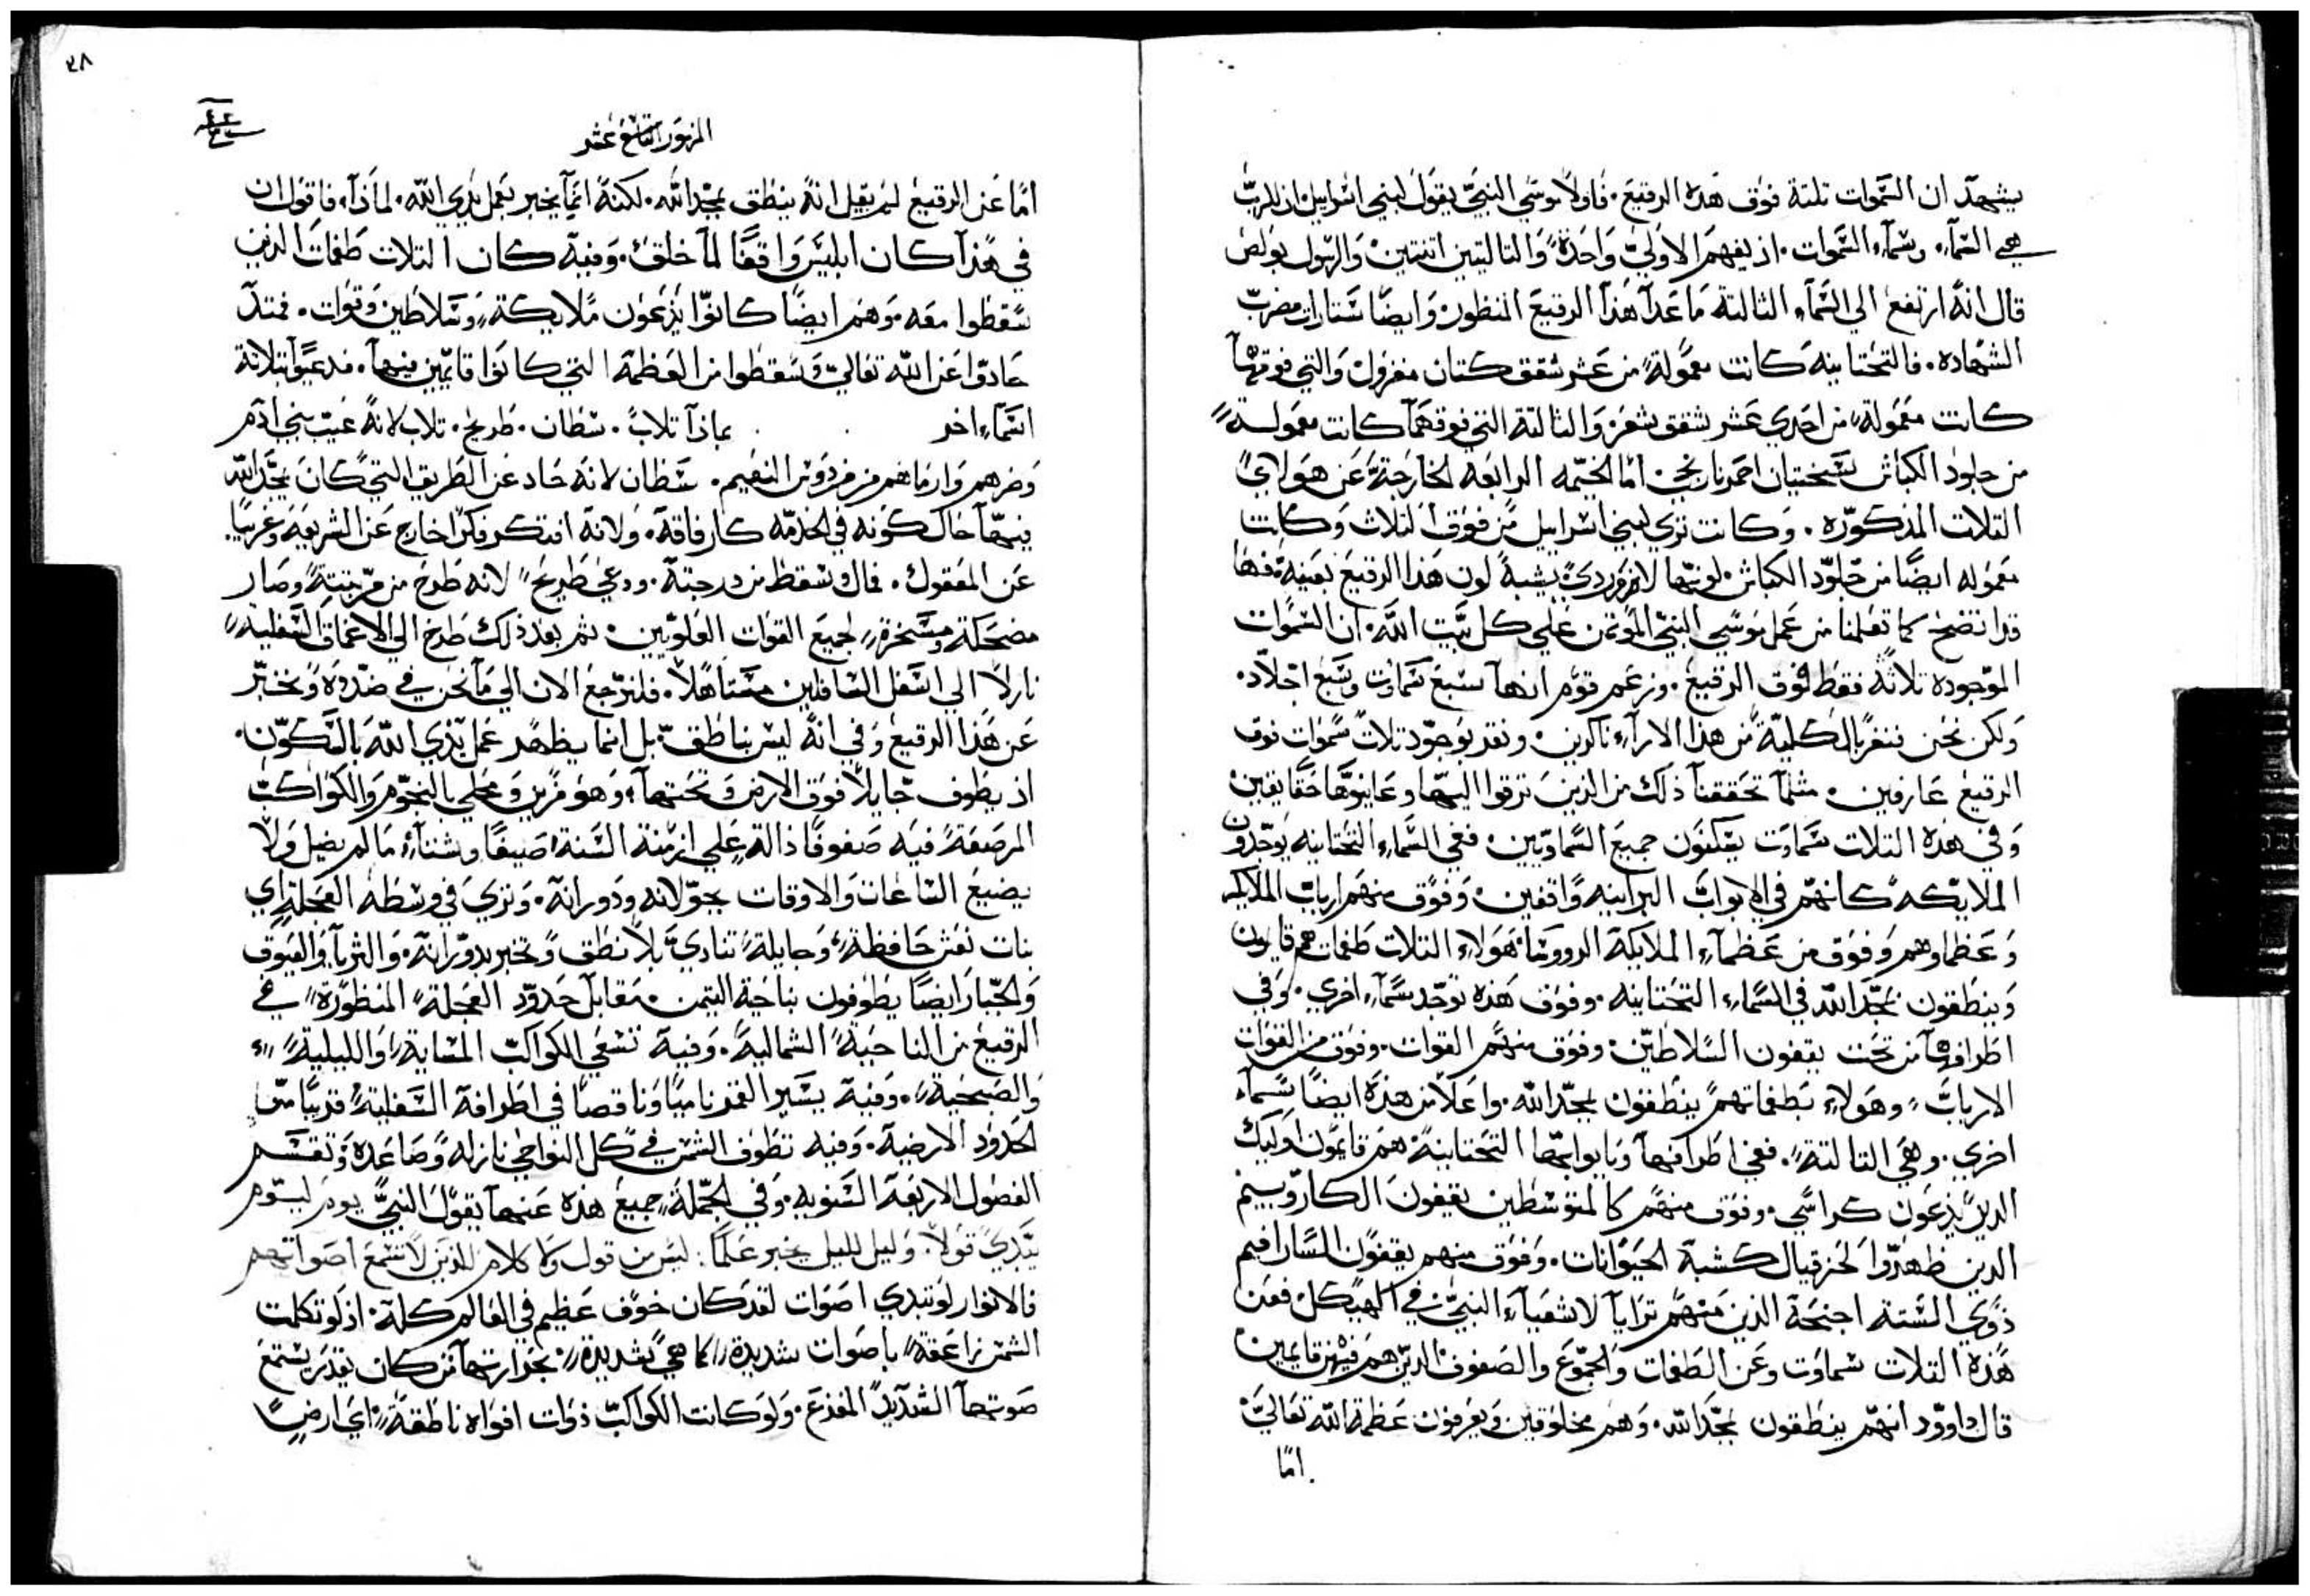 يشهد ان السموات تلتة فوق هذه الرقيع. فاولًا موسي النبي يقول لبني اسراييل ان للرب
هي السمآء. وسمآء السموات. اذ يفهم الاولي واحدة والتاليتين اتنتين والرسول بولص
قال انه ارتفع الي السمآء الثالتة ما عدا هذا الرقيع المنظور وايضًا ستارات مضرب
الشهاده. فالتحتانيه كانت معمولة من عشر شقق كتان مغزول والتي فوقها
كانت معمولة من احدي عشر شقق شعر والثالتة التي فوقهما كانت معمولة
من جلود الكباش سختيان احمر نارنجي اما الخيمه الرابعه الخارجة عن هولاي
التلات المذكوره. وكانت تري لبني اسراييل من فوق التلاث وكانت
معموله ايضًا من جلود الكباش لونها لازوردي يشبه لون هذا الرقيع بعينه فها
قد اتضح كما تعلمنا من عمل موسي النبي الموتمن علي كل بيت الله. ان السموات
الموجوده تلاتة فقط فوق الرقيع. وزعم قوم انها سبع سماوت وسبع اجلاد.
ولكن نحن ننفر بالكلية من هذا الاراء ناكرين. ونقر بوجود تلات سموات فوق
الرقيع عارفين. مثلما تحققنا ذلك من الذين ترقوا اليها وعاينوها حقًا يقين
وفي هذه التلات سماوت يسكنون جميع السماويين. ففي السماء التحتانيه يوجدون
الملايكه كانهم في الابواب البرانيه واقفين. وفوق منهم ارباب الملايكه
وعظماوهم وفوق من عظمآء الملايكة الرووسا. هولاء التلات طغمات هم قايمون
وينطقون بمجد الله في السماء التحتانيه. وفوق هذه توجد سمآء اخري. وفي
اطرافها من تحت يقفون السلاطين. وفوق منهم القوات. وفوق من القوات
الارباب. وهولاء بطغماتهم ينطقون بمجد الله. واعلا من هذه ايضًا سمآء
اخري. وهي التالتة. ففي اطرافها وبابوابها التحتانية هم قايمون اوليك
الذين يدعون كراسي. وفوق منهم كالمتوسطين يقيفون الكاروبيم
الذين ظهروا لحزقيال كشبه الحيوانات. وفوق منهم يقفون السارافيم
ذوي الستة اجنحة الذين منهم ترايا لاشعياء النبي في الهيكل فعن
هذه التلات سماوت وعن الطغمات والجموع والصفوف الذين هم فيهن قايمين
قال داوود انهم ينطقون بمجد الله. وهم مخلوقين ويعرفون عظمة الله تعالي
اما
٢٨
المزمور التاسع عشر
اما عن الرقيع لم يقيل انه ينطق بمجد الله. لكنه انما يخبر بعمل يدي الله. لماذا. فاقول ان
في هذا كان ابليس واقفًا لما خلق. وفيه كان التلات طغمات الذين
سقطوا معه. وهم ايضًا كانوا يدعون ملايكة وسلاطين وقوات. فمتذ
حادوا عن الله تعالي وسقطوا من العظمة التي كانوا قايمين فيها. فدعيوا بتلاتة
اسماء اخر بماذا تلاب. شطان. طريح. تلاب لانه عيب بني ادم
وضرهم وارماهم من فردوس النعيم. شطان لانه حاد عن الطريق التي كان يمجد الله
فيها حال كونه في الخدمه كارفاقه. ولانه افتكر فكرًا خارج عن الشريعة وغريبًا
عن المعقول. فمال وسقط من درجته. ودعي طريح لانه طرح من مرتبته وصار
مضحكة ومسخرة لجميع القوات العلويين. ثم بعد ذلك طرح الي الاعماق السفلية
نازلًا الي اسفل السافلين مستاهلًا. فلنرجع الان الي ما نحن في صدده ونخبر
عن هذا الرقيع وفي انه ليس بناطق. بل انما يظهر عمل يدي الله بالسكون.
اذ يطوف جايلًا فوق الارض وتحتها. وهو مزين ومحلي بالنجوم والكواكب
المرصعة فيه صفوفًا دالة علي ازمنة السنة صيفًا وشتآء ما لم يضل ولا
يضيع الساعات والاوقات بجولانه ودورانه. وتري في وسطه العجلة اي
بنات نعش حافظة وجايلة تنادي بلا نطق وتخبر بدورانه. والثريا والعيوق
والجبار ايضًا يطوفون بناحية اليمن مقابل حدود العجلة المنظورة في
الرقيع من الناحية الشمالية. وفيه تسعي الكواكب المسايه والليلية
والصبحية. وفيه يسير القمر ناميًا وناقصًا في اطرافه السفلية قريبًا من
الحدود الارضية. وفيه تطوف الشمس في كل النواحي نازله وصاعده وتقسم
الفصول الاربعة السنويه. وفي الجملة جميع هذه عنها يقول النبي يوم ليوم
يبدي قولًا. وليل لليل يخبر علمًا. ليس من قول ولا كلام الذين لا تسمع اصواتهم
فالانوار لو تبدي اصوات لقد كان خوف عظيم في العالم كله. اذ لو تكلمت
الشمس زاعقة باصوات شديدة كما هي شديدة بحرارتها من كان يقدر يستمع
صوتها الشديد المفزع. ولو كانت الكواكب ذوات افواه ناطقة اي ارض